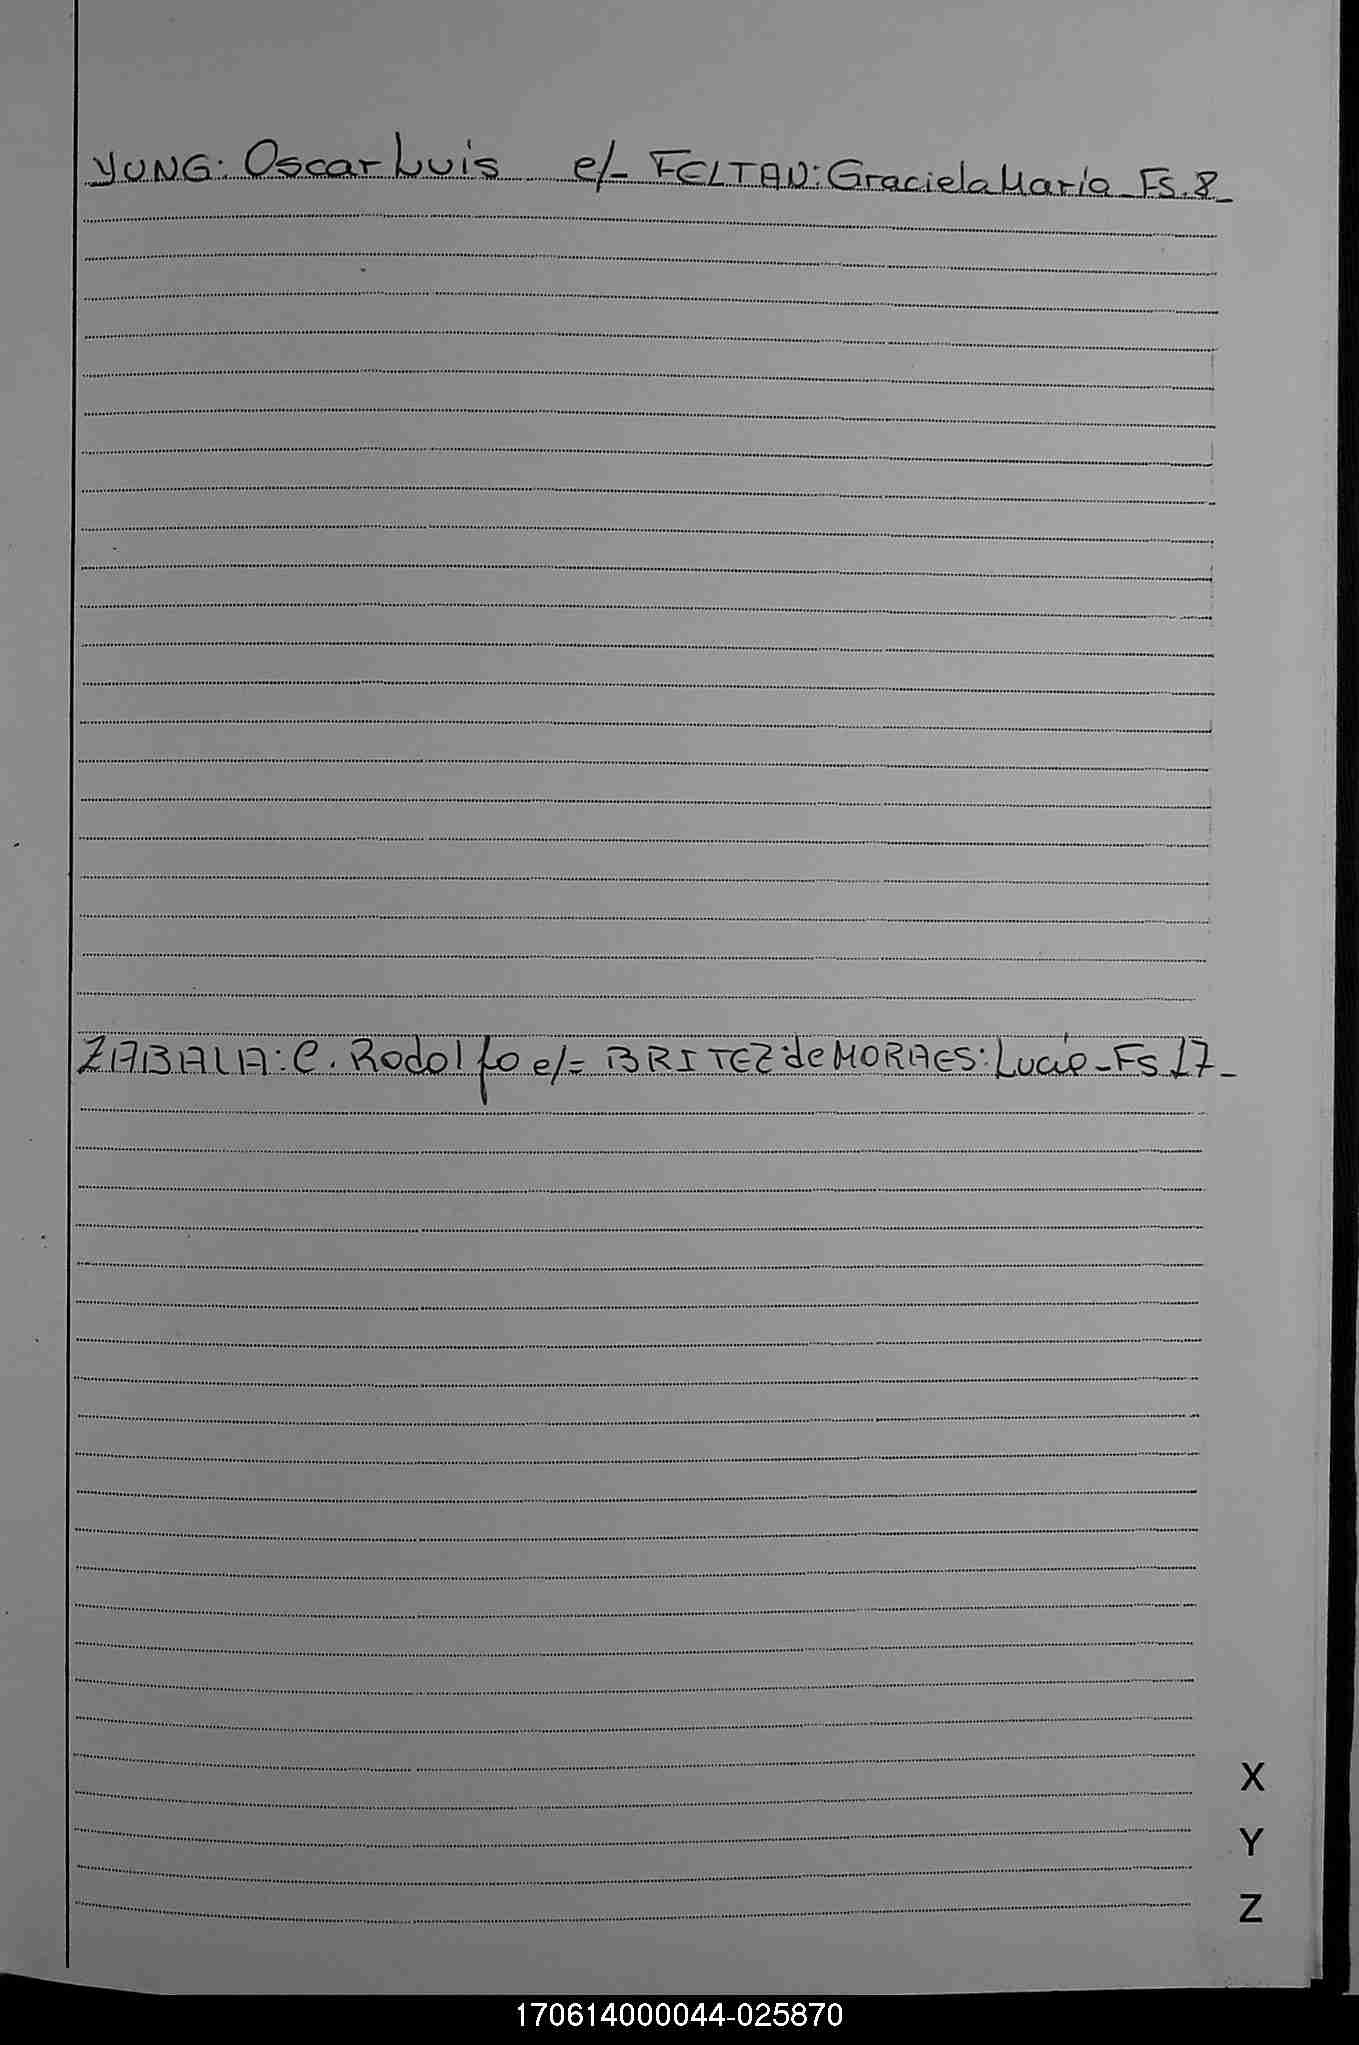 YUNG: Oscar Luis e/- FELTAN: Graciela Maria - Fs. 8 -
ZABALA: C. Rodolfo e/= BRITEZ de MORAES: Lucio - Fs 17 -
X
Y
Z
170614000044-025870